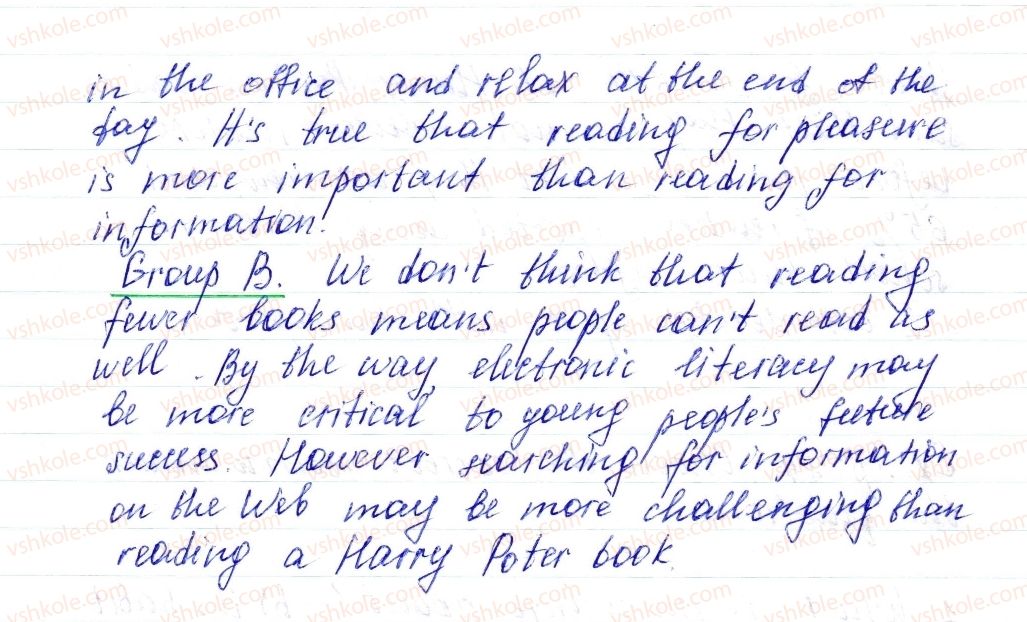 in the office and relax at the end of the
day. It's true that reading for pleasure
is more important than reading for
information!
Group B. We don't think that reading
fewer books means people can't read as
well. By the way electronic literacy may
be more critical to young people's future
success. However searching for information
on the Web may be more challenging than
reading a Harry Poter book.
vshkole.com